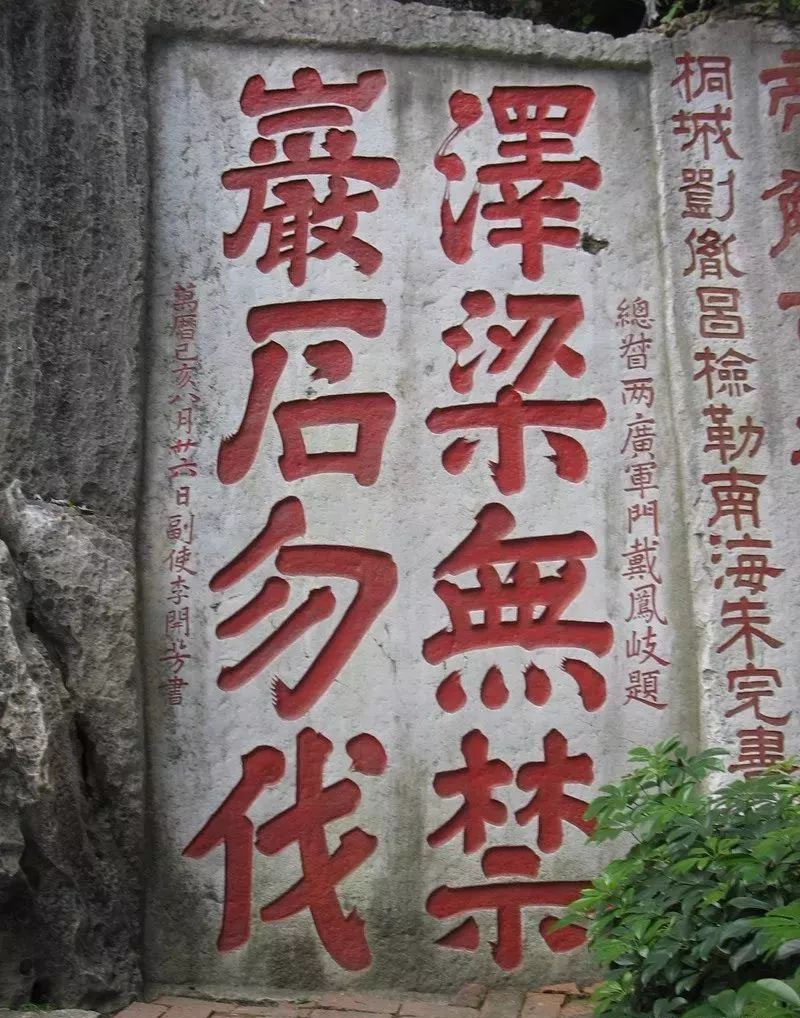 桐城劉胤昌檢勒南海朱完書
總督两廣軍門戴鳳岐題
澤梁無禁
巖石勿伐
萬曆己亥八月廿六日副使李開芳書